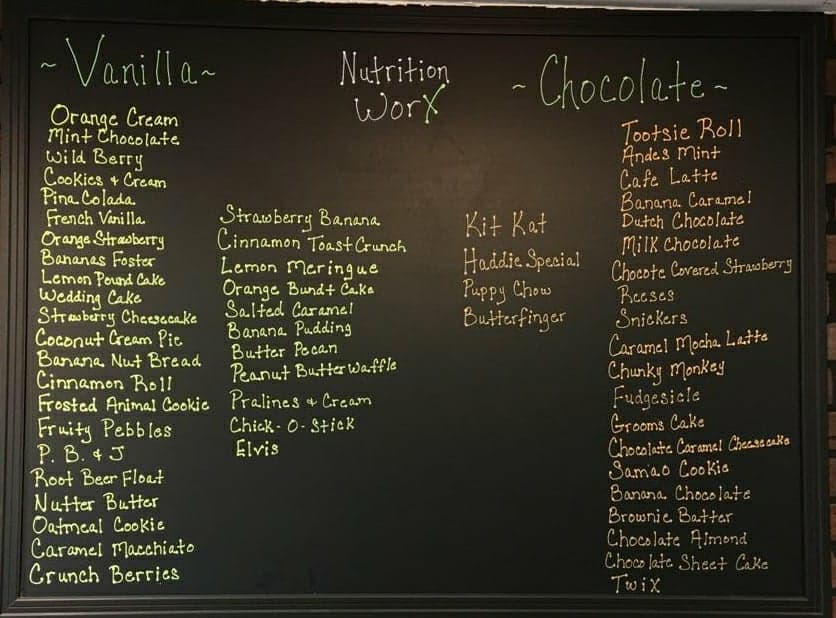 ~Vanilla~
Orange Cream
Mint Chocolate
Wild Berry
Cookies + Cream
Pina Colada
French Vinilla
Orange Strawberry
Bananas Foster
Lemon Pound Cake
Wedding Cake
Strawberry Cheesecake
Coconut Cream Pie
Banana Nut Bread
Cinnamon Roll
Frosted Animal Cookie
Fruity Pebbles
P. B. & J
Root Beer Float
Nutter Butter
Oatmeal Cookie
Caramel Macchiato
Crunch Berries
Strawberry Banana
Cinnamon Toast Crunch
Lemon Meringue
Orange Bundt Cake
Salted Caramel
Banana Pudding
Butter Pecan
Peanut Butter Waffle
Pralines + Cream
Chick-O-Stick
Elvis
Nutrition
WorX
~Chocolate~
Kit Kat
Haddie Special
Puppy Chow
Butterfinger
Tootsie Roll
Andes Mint
Cafe Latte
Banana Caramel
Dutch Chocolate
Milk Chocolate
Chocote Covered Strawberry
Reeses
Snickers
Caramel Mocha Latte
Chunky Monkey
Fudgesicle
Grooms Cake
Chocolate Caramel Cheesecake
Samao Cookie
Banana Chocolate
Brownie Batter
Chocolate Almond
Chocolate Sheet Cake
Twix